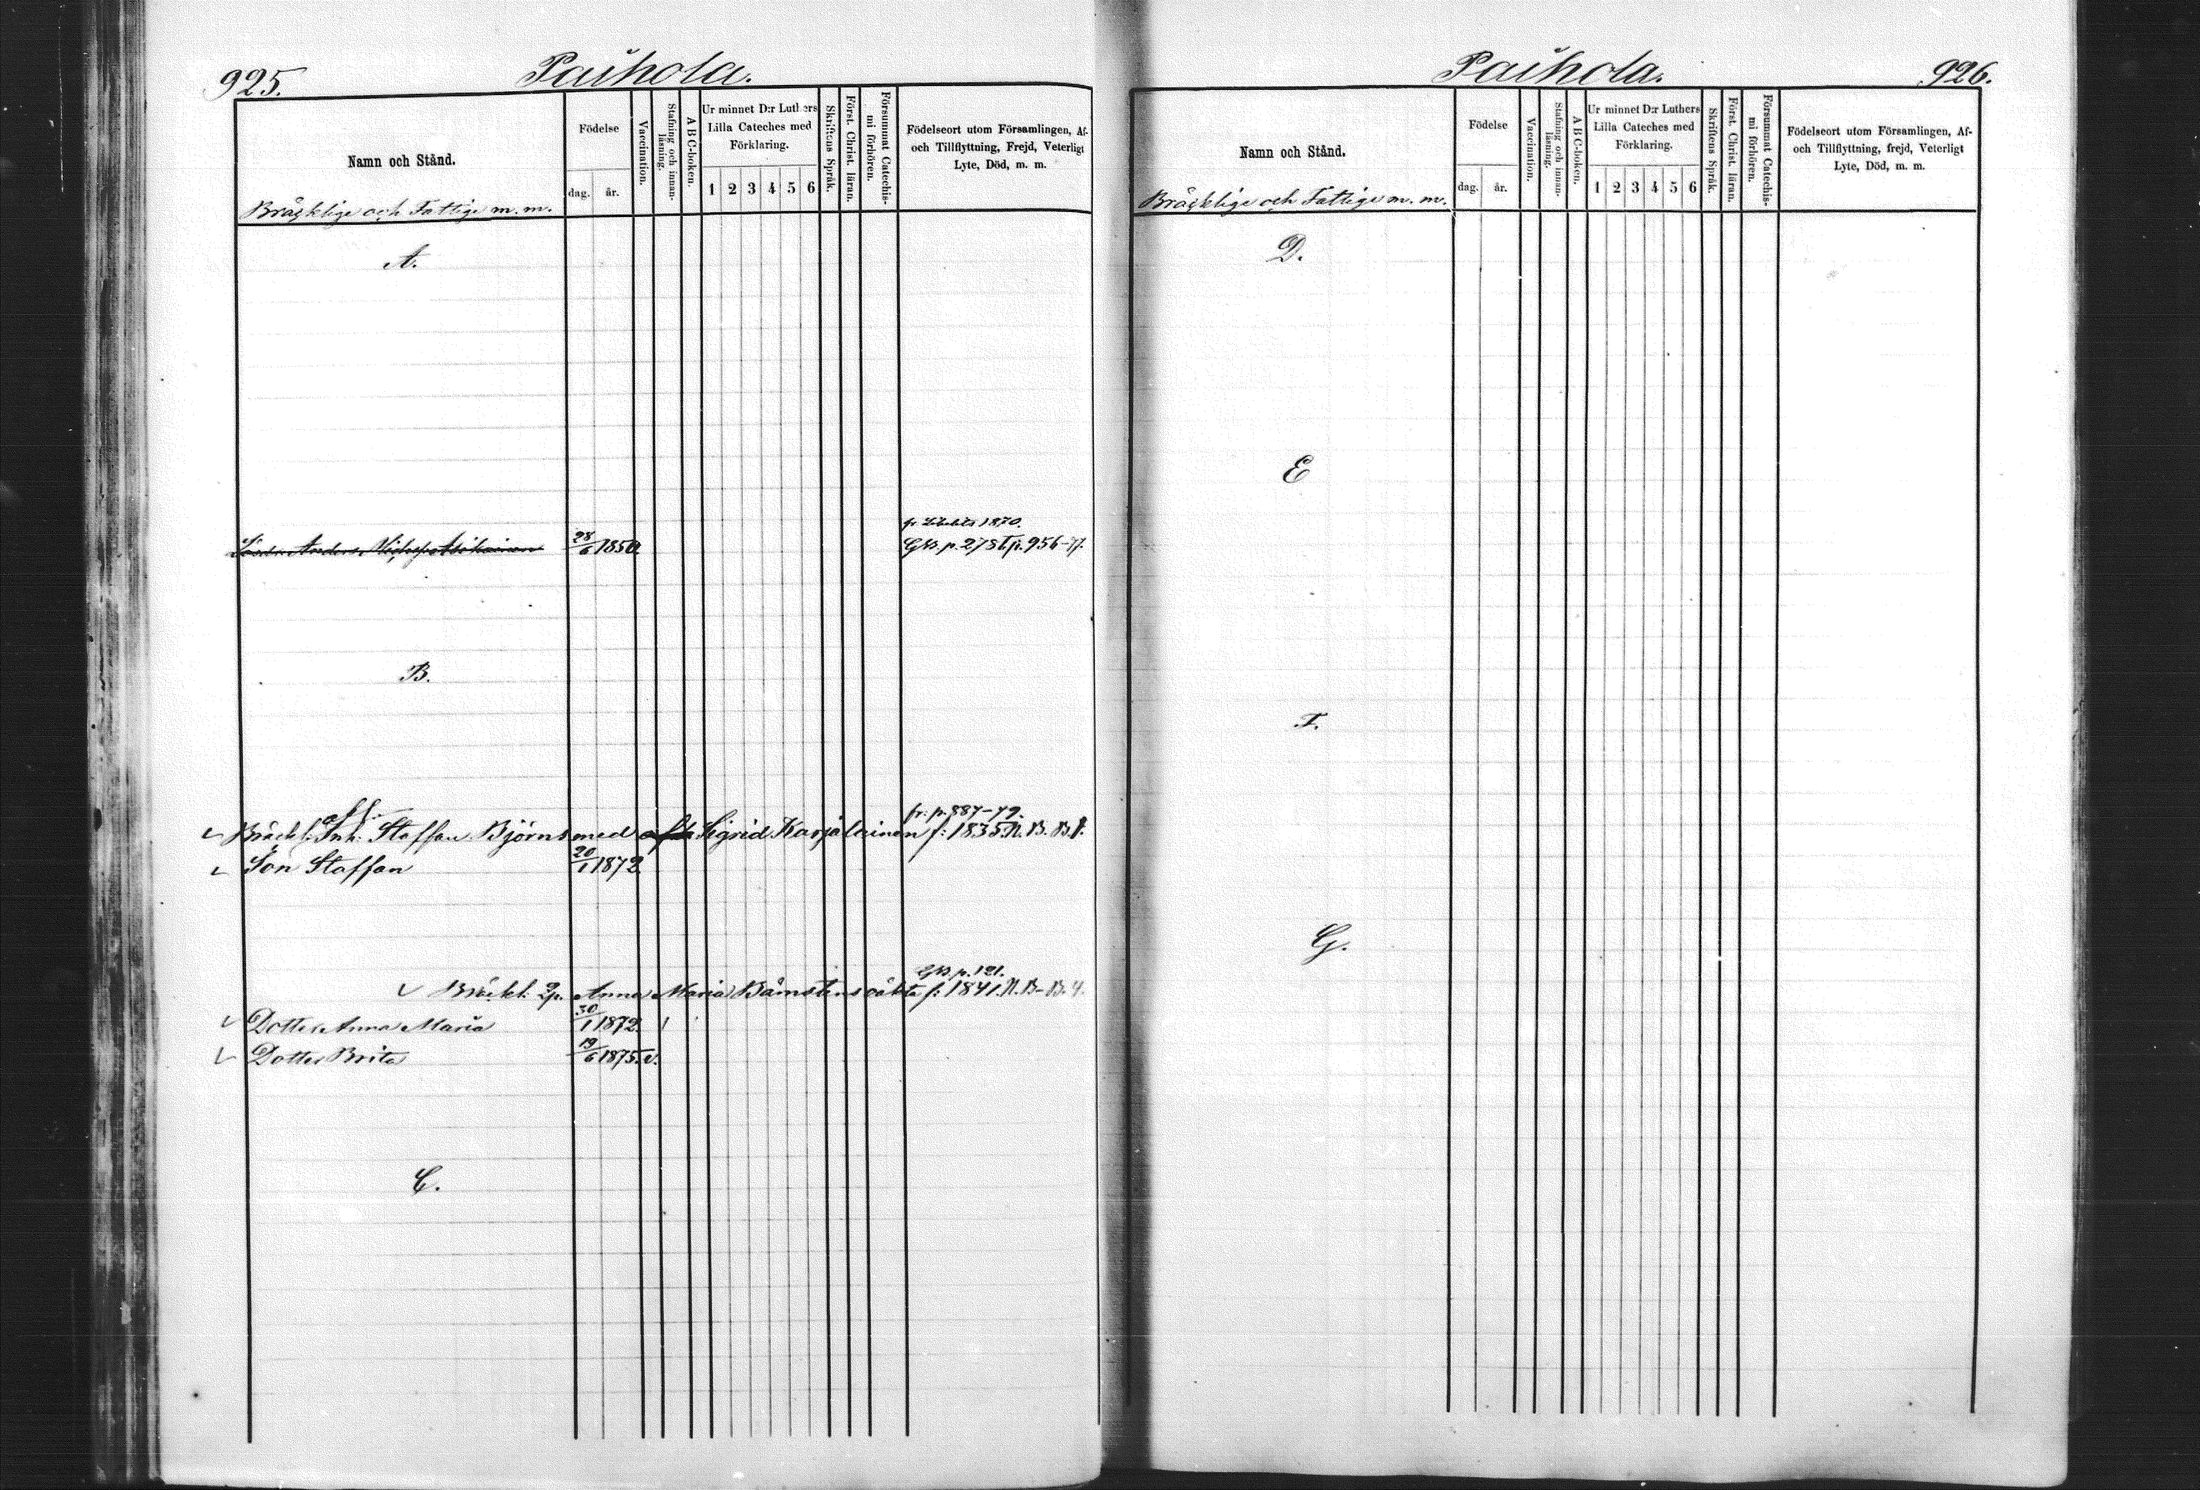 925.
Paihola.
Namn och Stånd.
Bräcklige och Fattige m. m.
Födelse
dag.
år.
Vaccination.
Stafning och innan-
läsning.
A B C-boken.
Ur minnet D:r Luthers
Lilla Cateches med
Förklaring.
1 2 3 4 5 6
Skriftens Språk.
Först. Christ. läran.
Försummat Catechis-
mi förhören.
Födelseort utom Församlingen, Af-
och Tillflyttning, Frejd, Veterligt
Lyte, Död, m. m.
A.
fr 1870.
Anders 28/6 1850. p. 278 p. 956-77.
B.
fr. p. 887-79.
Bräckl. Inh. Staffan Björns med Sigrid Karjalainen f: 1835. N. B. B. 1.
Son Staffan 20/1 1872.
p. 121.
Bräckl. Anna Maria oäkta f: 1841. N. B. - B. 4.
Dotter Anna Maria 30/1 1872.
Dotter Brita 19/6 1875. v.
C.
Paihola.
926.
Namn och Stånd.
Bräcklige och Fattige m. m.
Födelse
dag.
år.
Vaccination.
Stafning och innan-
läsning.
A B C-boken.
Ur minnet D:r Luthers
Lilla Cateches med
Förklaring.
1 2 3 4 5 6
Skriftens Språk.
Först. Christ. läran.
Försummat Catechis-
mi förhören.
Födelseort utom Församlingen, Af-
och Tillflyttning, frejd, Veterligt
Lyte, Död, m. m.
D.
E
F.
G.